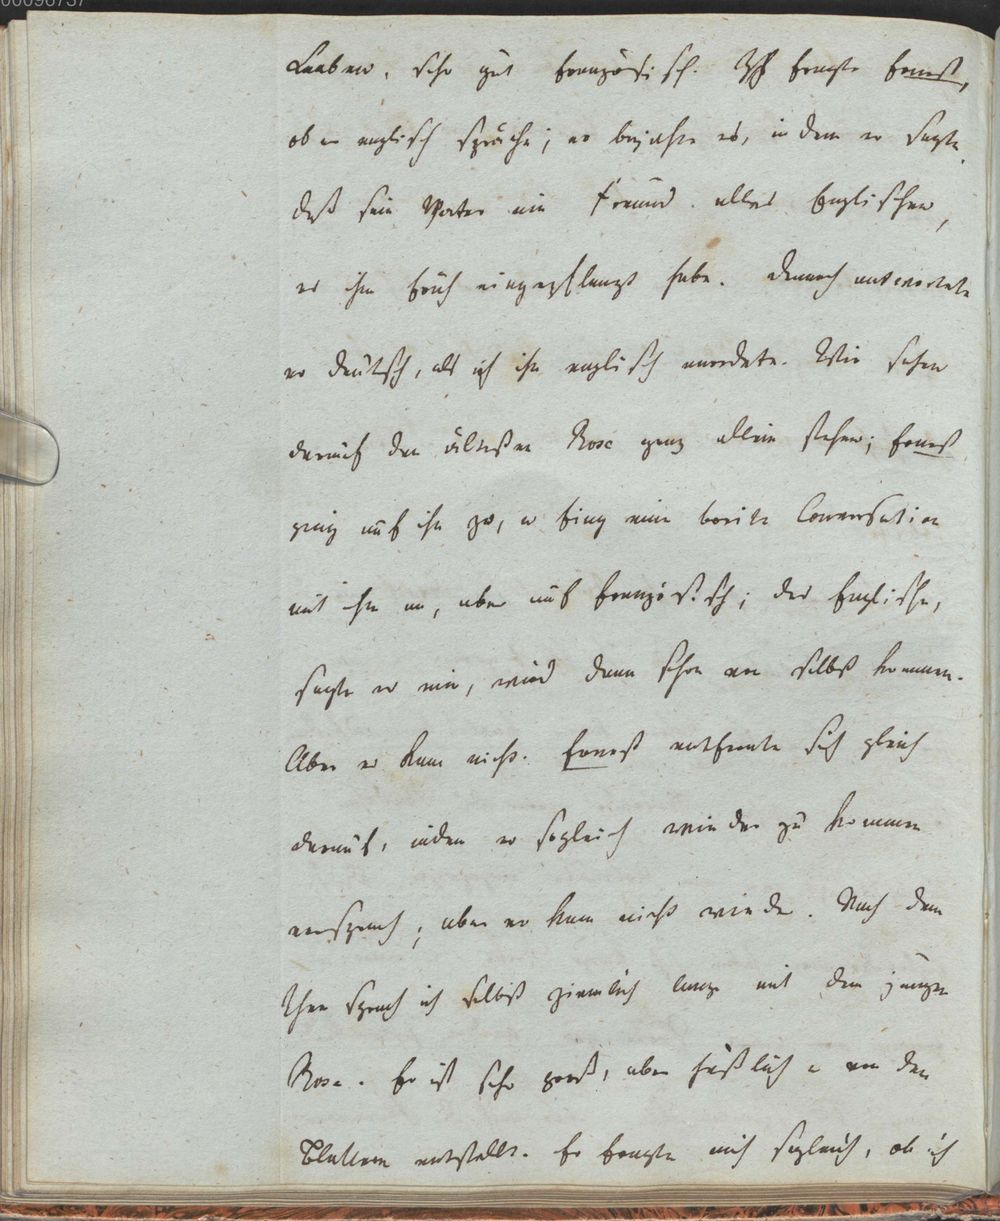 00096737
Knaben, sehr gut französisch. Ich fragte Ernst,
ob er englisch spräche; er bejahte es, indem er sagte,
daß sein Vater ein Freund alles Englischen,
es ihm früh eingepflanzt habe. Dennoch antwortete
er deutsch, als ich ihn englisch anredete. Wir sahen
darauf den ältesten Rose ganz allein stehen; Ernst
ging auf ihn zu, u fing eine breite Conversation
mit ihm an, aber auf französisch; das Englische,
sagte er mir, wird dann schon von selbst kommen.
Aber es kam nicht. Ernst entfernte sich gleich
darauf, indem er sogleich wieder zu kommen
versprach; aber er kam nicht wieder. Nach dem
Thee sprach ich selbst ziemlich lange mit dem jungen
Rose. Er ist sehr groß, aber häßlich u von den
Blattern entstellt. Er fragte mich sogleich, ob ich